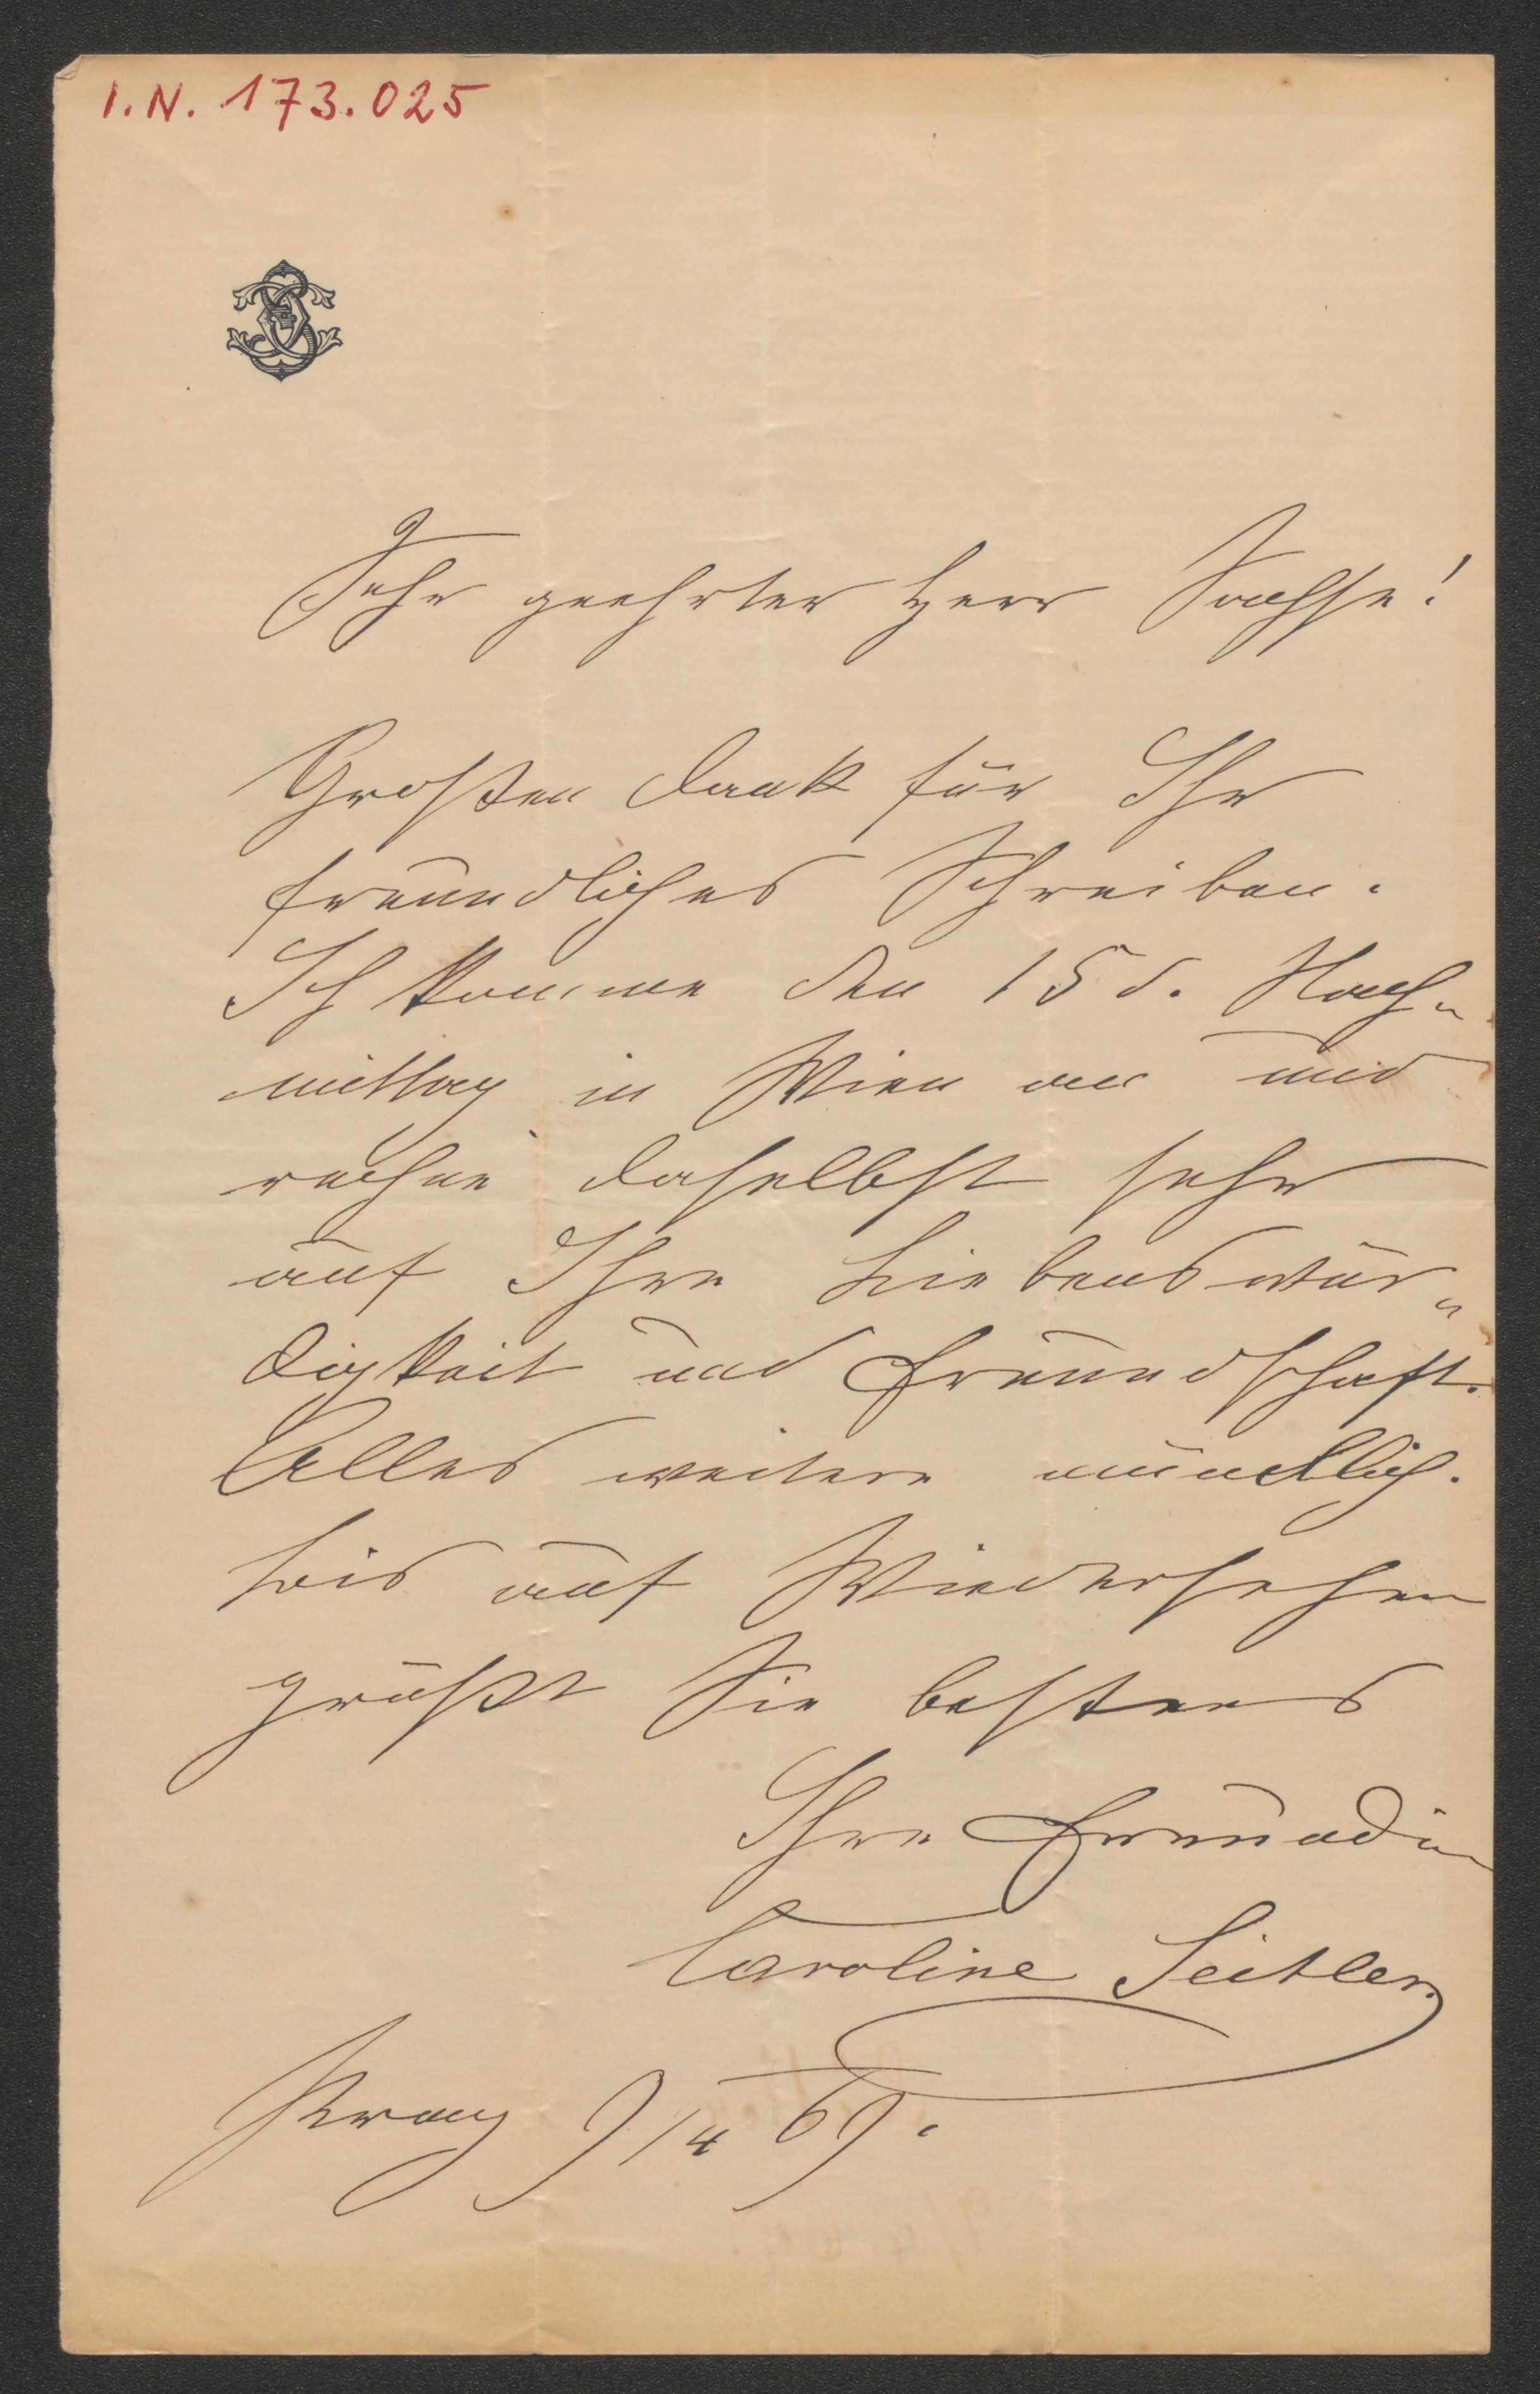 I.N. 173.025
Sehr geehrter Herr Sachse!
Großen Dank für Ihr
freundliches Schreiben.
Ich komme den 15 d. Nach„
mittag in Wien an und
rechne daselbst sehr
auf Ihre Liebenswür„
digkeit und Freundschaft.
Alles weitere mündlich.
bis auf Wiedersehen
grüßt Sie bestens
Ihre Freundin
Caroline Seitler
Prag 9/4 69.